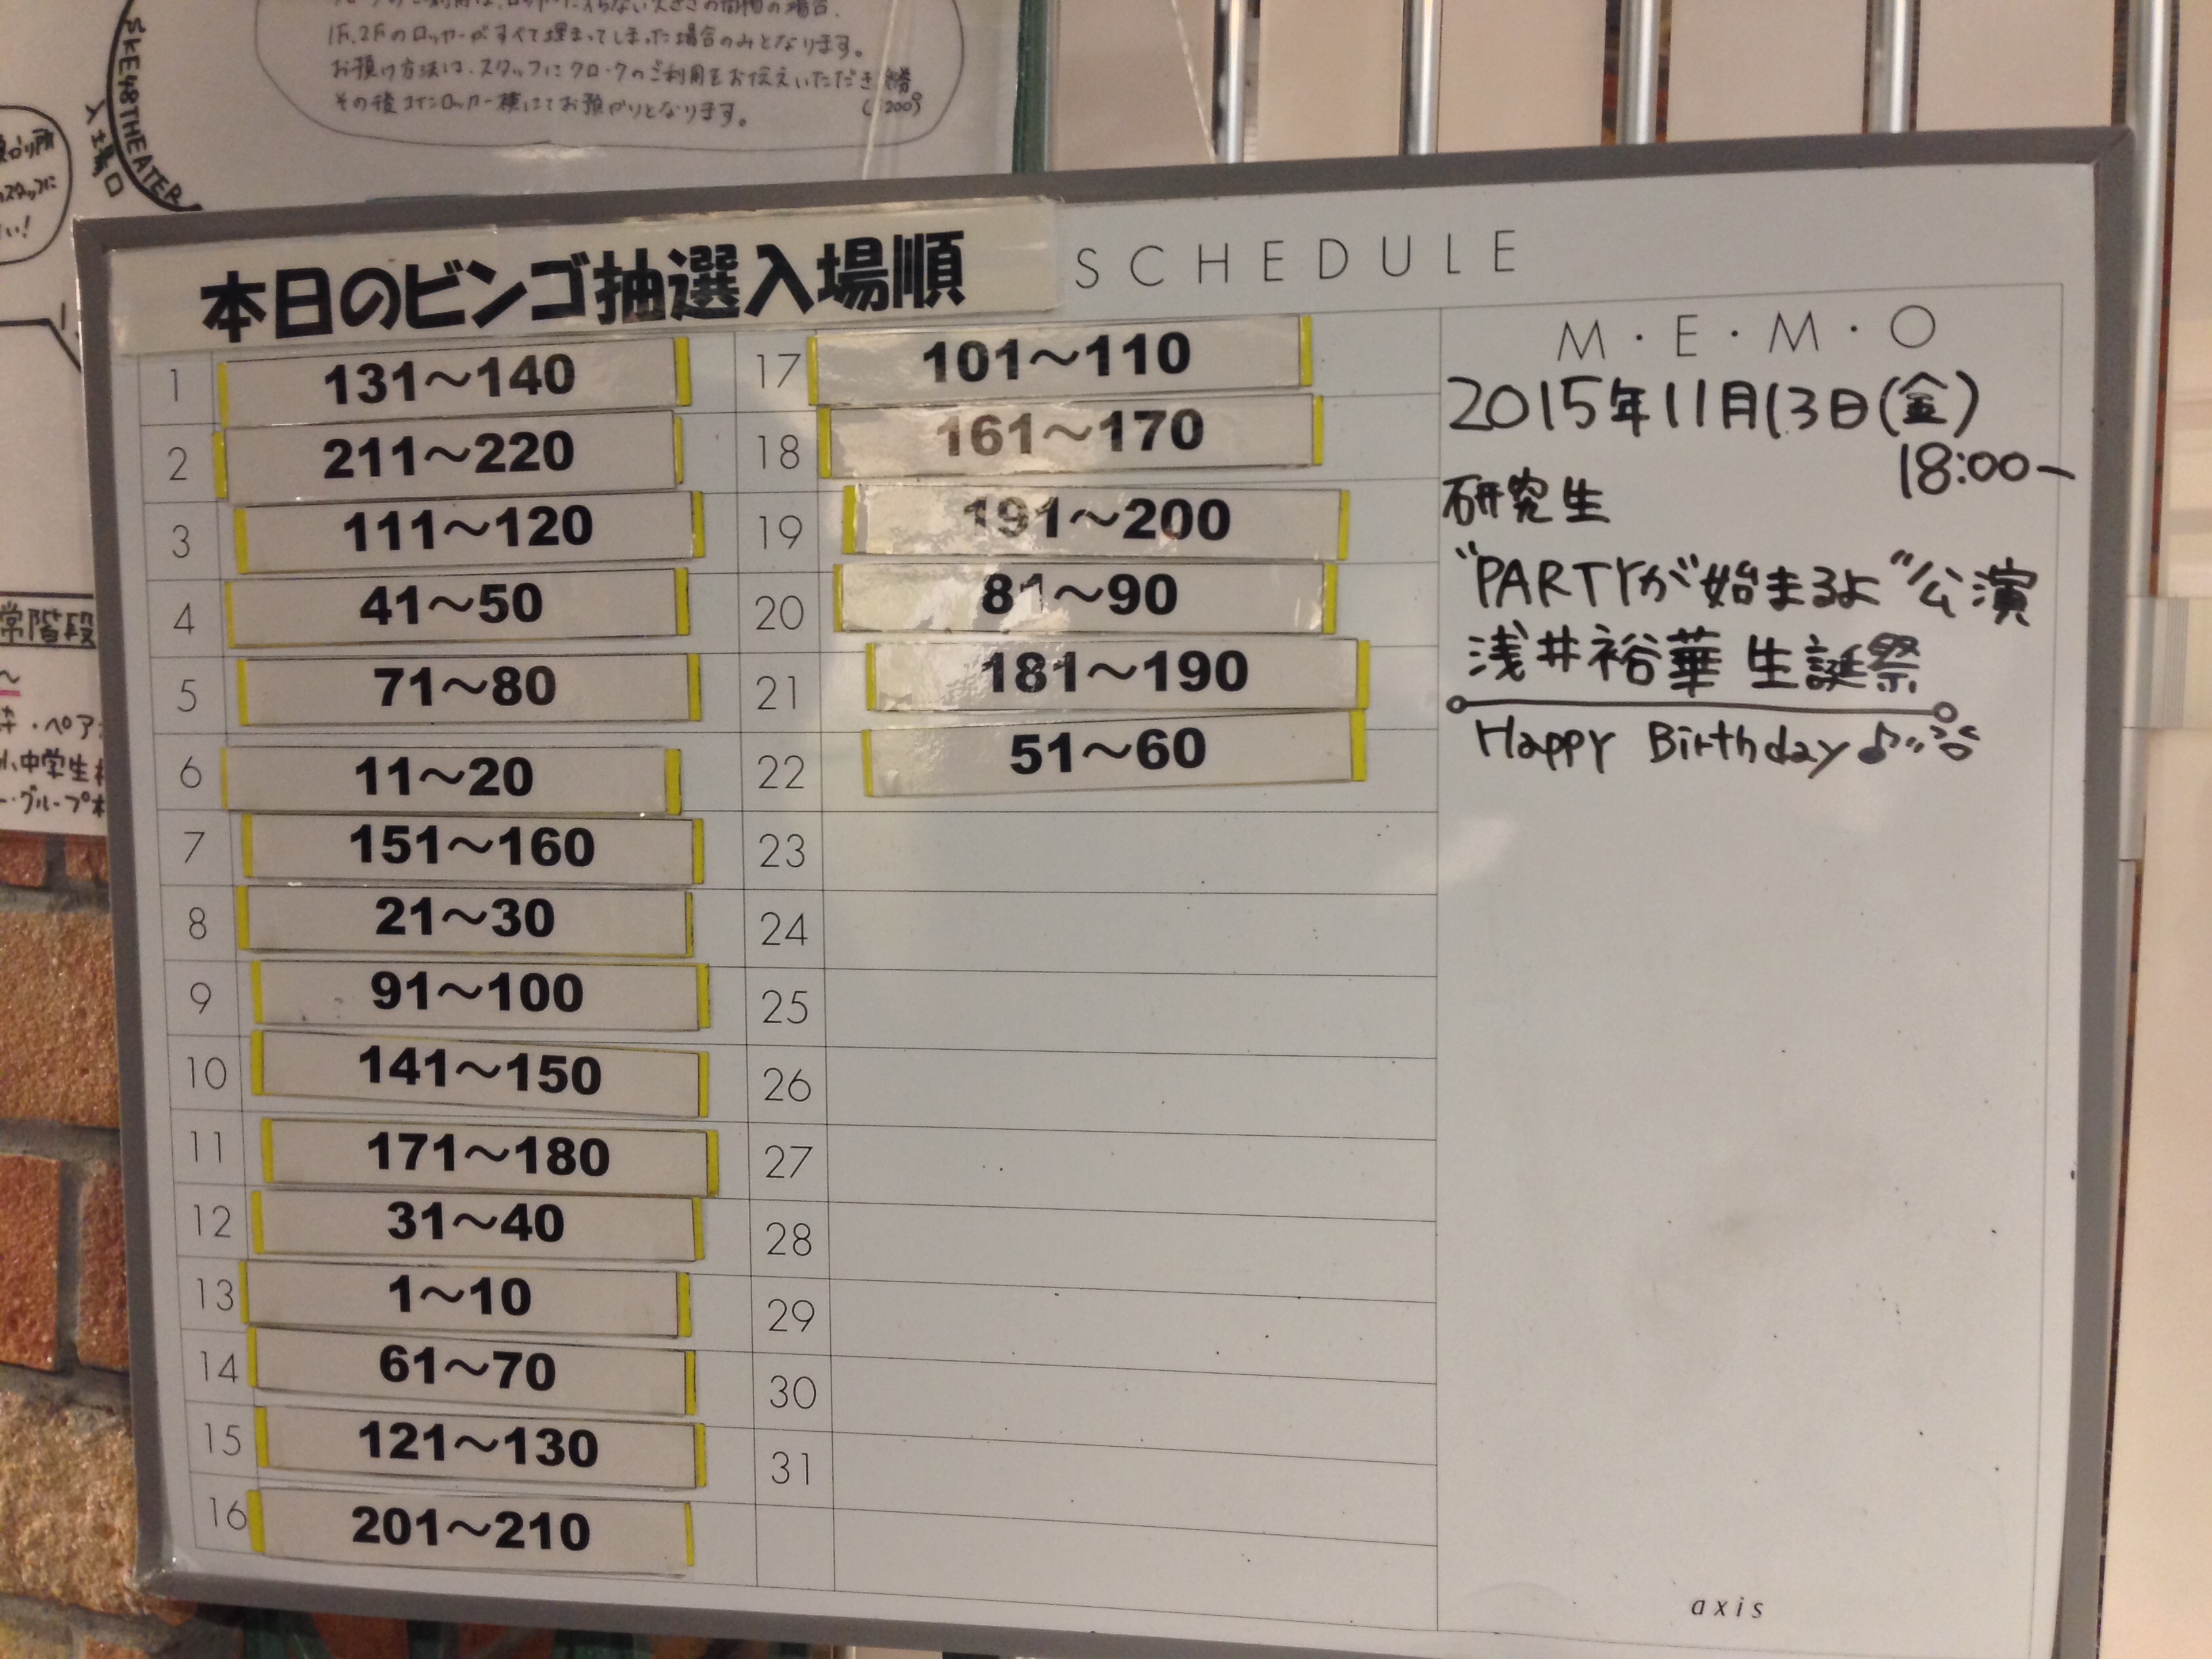 1F、2Fのロッカーがすべて埋まってしまった場合のみとなります。
お預け方法は、スタッフにクロークのご利用をお伝えいただき
その後コインロッカー横にてお預かりとなります。
SKE48THEATER
入場口
常階段
小中学生
本日のビンゴ抽選入場順
SCHEDULE
1 131～140
2 211～220
3 111～120
4 41～50
5 71～80
6 11～20
7 151～160
8 21～30
9 91～100
10 141～150
11 171～180
12 31～40
13 1～10
14 61～70
15 121～130
16 201～210
17 101～110
18 161～170
19 191～200
20 81～90
21 181～190
22 51～60
23
24
25
26
27
28
29
30
31
M・E・M・O
2015年11月13日(金)
18:00~
研究生
"PARTYが始まるよ"公演
浅井裕華 生誕祭
Happy Birthday♪
axis